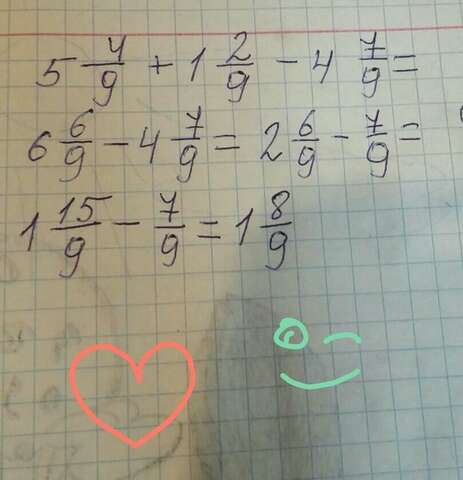 5 4/9 + 1 2/9 - 4 7/9 =
6 6/9 - 4 7/9 = 2 6/9 - 7/9 =
1 15/9 - 7/9 = 1 8/9